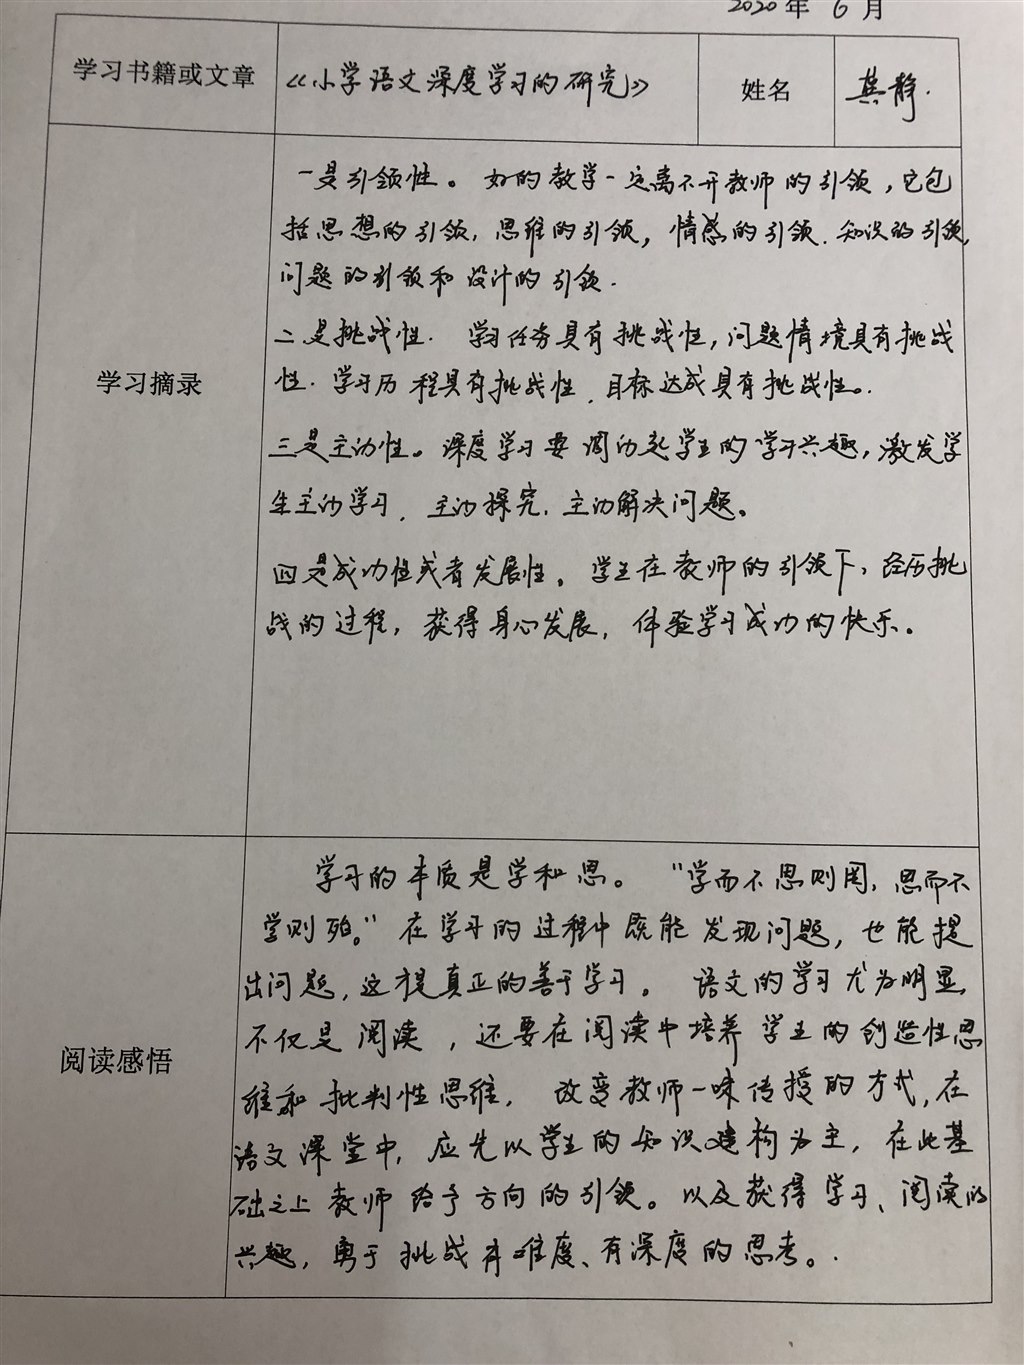 2020年 6月
学习书籍或文章 《小学语文深度学习的研究》 姓名 龚静.
学习摘录
一是引领性。好的教学一定离不开教师的引领，它包
括思想的引领，思维的引领，情感的引领，知识的引领，
问题的引领和设计的引领.
二是挑战性. 学习任务具有挑战性，问题情境具有挑战
性. 学习历程具有挑战性，目标达成具有挑战性。
三是主动性。深度学习要调动起学生的学习兴趣，激发学
生主动学习，主动探究，主动解决问题。
四是成功性或者发展性。学生在教师的引领下，经历挑
战的过程，获得身心发展，体验学习成功的快乐。
阅读感悟
学习的本质是学和思。“学而不思则罔，思而不
学则殆。”在学习的过程中既能发现问题，也能提
出问题，这才是真正的善于学习。语文的学习尤为明显，
不仅是阅读，还要在阅读中培养学生的创造性思
维和批判性思维，改变教师一味传授的方式，在
语文课堂中，应先以学生的知识建构为主，在此基
础之上教师给予方向的引领。以及获得学习、阅读的
兴趣，勇于挑战有难度、有深度的思考。